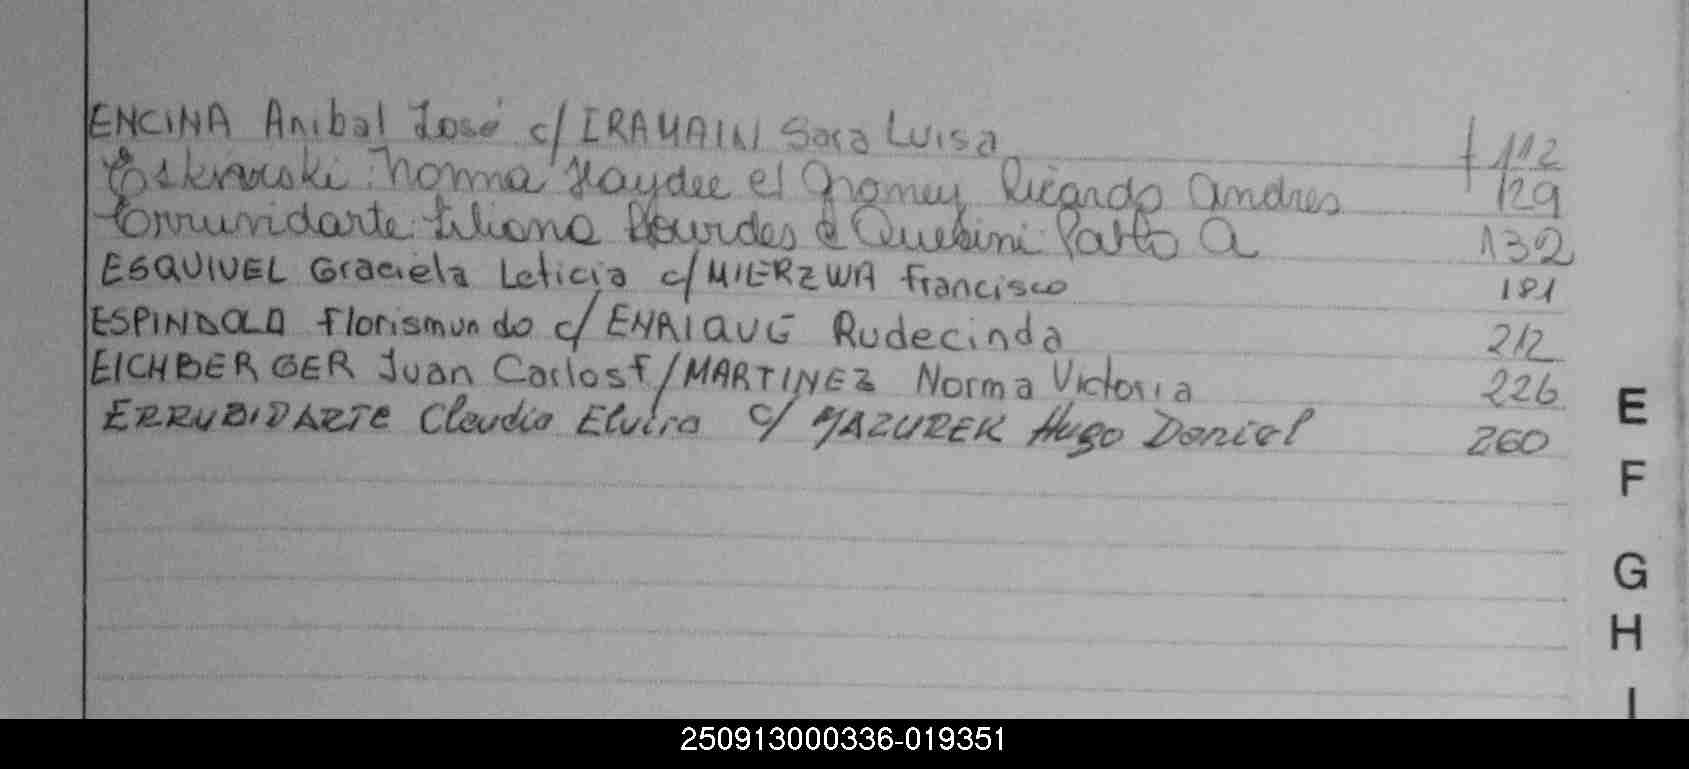 ENCINA Anibal José c/ IRAMAIN Sara Luisa 112
Norma Haydee c/ Ricardo Andres 129
Liliana Lourdes c Pablo A 132
ESQUIVEL Graciela Leticia c/ MIERZWA Francisco 181
ESPINDOLA Florismundo c/ ENRIQUE Rudecinda 212
EICHBERGER Juan Carlos c/ MARTINEZ Norma Victoria 226
ERRUBIDARTE Claudia Elvira c/ MAZUREK Hugo Daniel 260
E
F
G
H
I
250913000336-019351